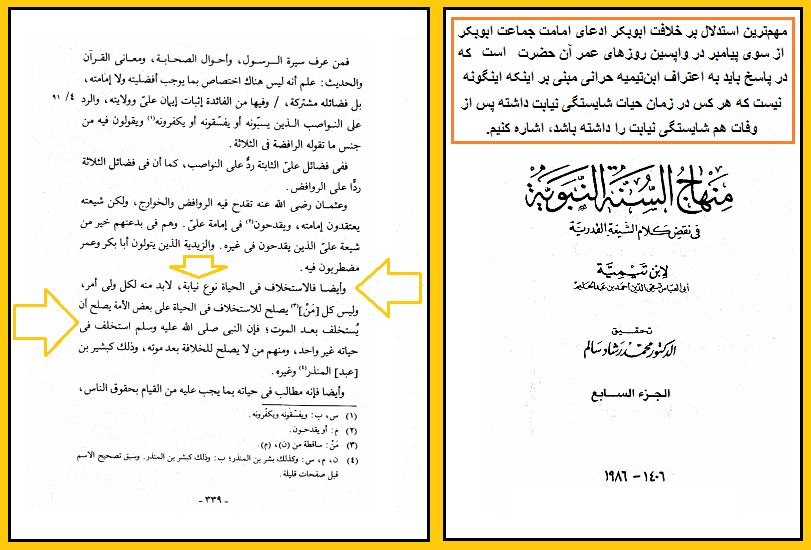 مهم‌ترین استدلال بر خلافت ابوبکر ادعای امامت جماعت ابوبکر
از سوی پیامبر در واپسین روزهای عمر آن حضرت است که
در پاسخ باید به اعتراف ابن‌تیمیه حرانی مبنی بر اینکه اینگونه
نیست که هر کس در زمان حیات شایستگی نیابت داشته پس از
وفات هم شایستگی نیابت را داشته باشد، اشاره کنیم.
منهاج السنة النبوية
في نقض كلام الشيعة القدرية
لابن تيمية
أبي العباس تقي الدين أحمد بن عبد الحليم
تحقيق
الدكتور محمد رشاد سالم
الجزء السابع
١٤٠٦ – ١٩٨٦
فمن عرف سيرة الرسول، وأحوال الصحابة، ومعانى القرآن
والحديث: علم أنه ليس هناك اختصاص بما يوجب أفضليته ولا إمامته،
بل فضائله مشتركة، / وفيها من الفائدة إثبات إيمان علىّ وولايته، والرد
٤/ ٩١
على النواصب الذين يسبّونه أو يفسّقونه أو يكفرونه(١) ويقولون فيه من
جنس ما تقوله الرافضة فى الثلاثة.
ففى فضائل علىّ الثابتة ردٌّ على النواصب، كما أن فى فضائل الثلاثة
ردًّا على الروافض.
وعثمان رضى الله عنه تقدح فيه الروافض والخوارج، ولكن شيعته
يعتقدون إمامته، ويقدحون(٢) فى إمامة علىّ. وهم فى بدعتهم خير من
شيعة علىّ الذين يقدحون فى غيره. والزيدية الذين يتولون أبا بكر وعمر
مضطربون فيه.
وأيضا فالاستخلاف فى الحياة نوع نيابة، لابد منه لكل ولى أمر،
وليس كل [مَنْ](٣) يصلح للاستخلاف فى الحياة على بعض الأمة يصلح أن
يُستخلف بعد الموت؛ فإن النبى صلى الله عليه وسلم استخلف فى
حياته غير واحد، ومنهم من لا يصلح للخلافة بعد موته، وذلك كبشير بن
[عبد] المنذر(٤) وغيره.
وأيضا فإنه مطالب فى حياته بما يجب عليه من القيام بحقوق الناس،
(١) س، ب: ويفسّقونه ويكفّرونه.
(٢) م: أو يقدحون.
(٣) مَنْ: ساقطة من (ن)، (م).
(٤) ن، م، س: وكذلك بشر بن المنذر؛ ب: وذلك كبشر بن المنذر. وسبق تصحيح الاسم
قبل صفحات قليلة.
- ٣٣٩ -